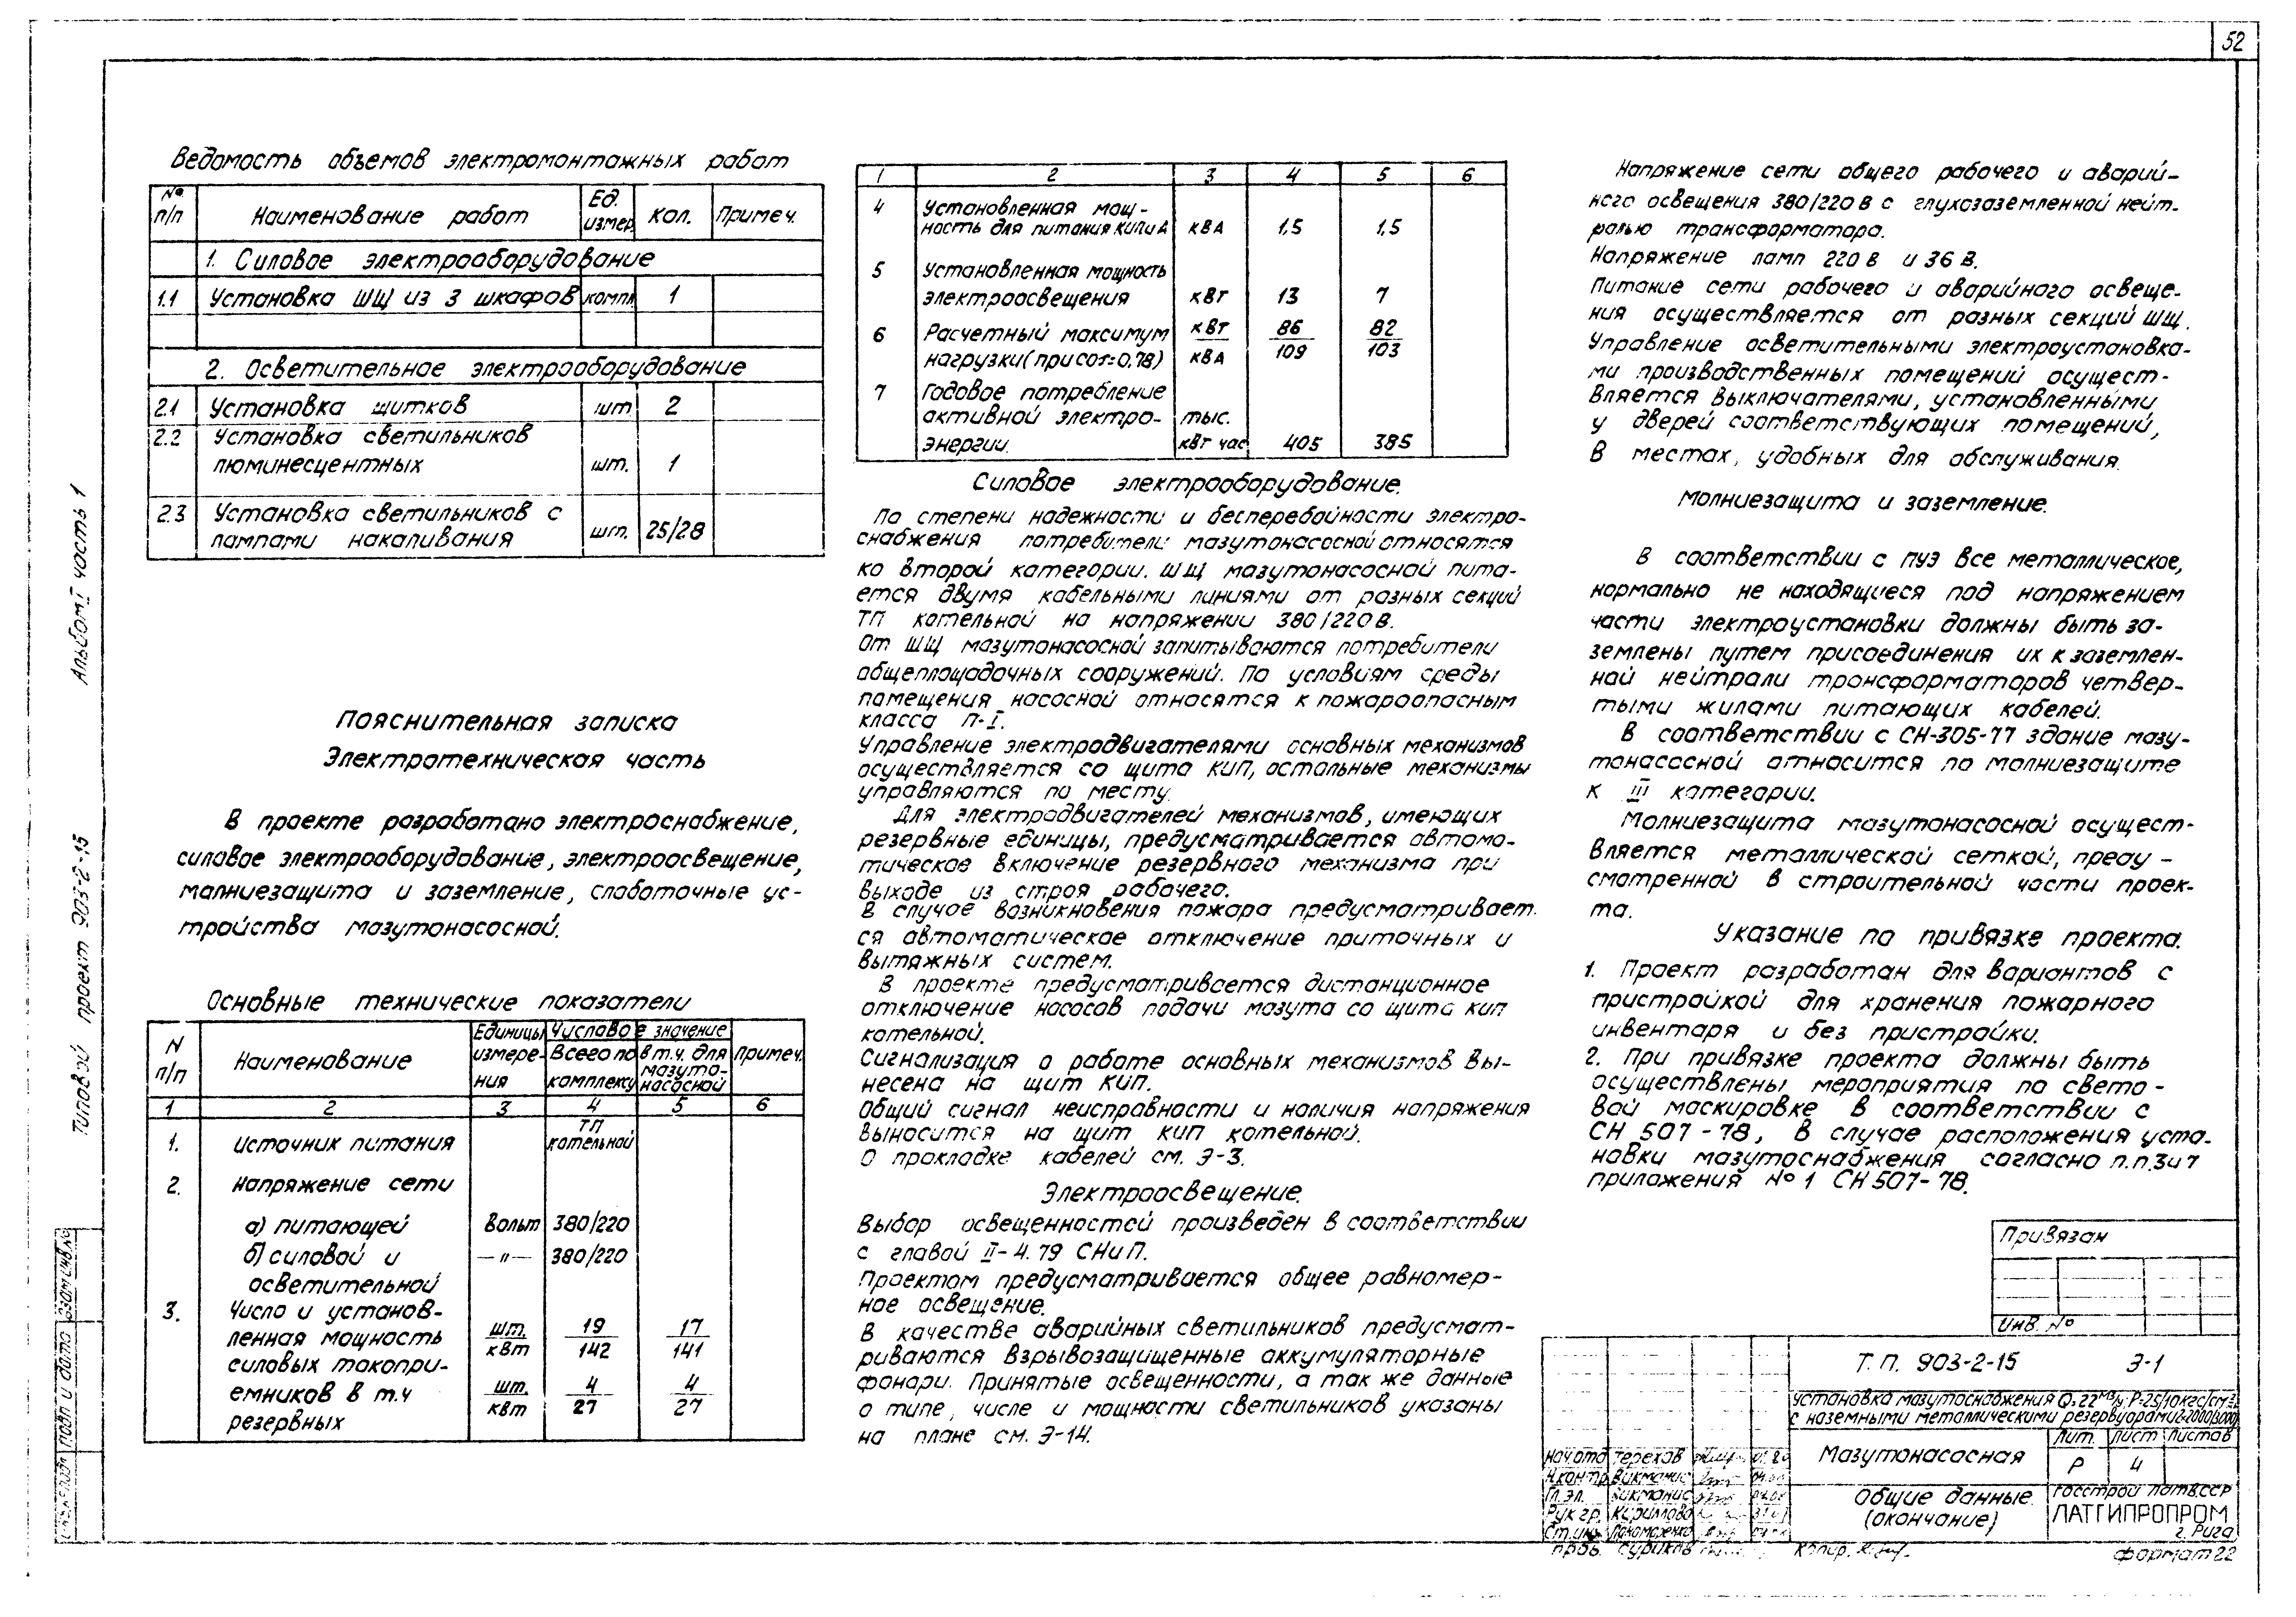 52
Ведомость объемов электромонтажных работ
№ п/п Наименование работ Ед. измер. Кол. Примеч.
1. Силовое электрооборудование
1.1 Установка ШЩ из 3 шкафов компл. 1
2. Осветительное электрооборудование
2.1 Установка щитков шт 2
2.2 Установка светильников
люминесцентных шт. 1
2.3 Установка светильников с
лампами накаливания шт. 25/28
Пояснительная записка
Электротехническая часть
В проекте разработано электроснабжение,
силовое электрооборудование, электроосвещение,
молниезащита и заземление, слаботочные ус-
тройства мазутонасосной.
Основные технические показатели
N п/п Наименование Единицы измере-ния Числовое значение Примеч.
Всего по комплексу в т.ч. для мазуто-насосной
1 2 3 4 5 6
1. Источник питания ТП котельной
2. Напряжение сети
а) питающей Вольт 380/220
б) силовой и —"— 380/220
осветительной
3. Число и установ-
ленная мощность шт. 19 17
силовых токопри- квт 142 141
емников в т.ч шт. 4 4
резервных квт 27 27
1 2 3 4 5 6
4 Установленная мощ-
ность для питания КИПиА кВА 1,5 1,5
5 Установленная мощность
электроосвещения кВт 13 7
6 Расчетный максимум кВт 86 82
нагрузки (при cosτ=0,78) кВА 109 103
7 Годовое потребление
активной электро- тыс.
энергии. кВт час 405 385
Силовое электрооборудование.
По степени надежности и бесперебойности электро-
снабжения потребители мазутонасосной относятся
ко второй категории. ШЩ мазутонасосной пита-
ется двумя кабельными линиями от разных секций
ТП котельной на напряжении 380/220в.
От ШЩ мазутонасосной запитываются потребители
общеплощадочных сооружений. По условиям среды
помещения насосной относятся к пожароопасным
класса П-I.
Управление электродвигателями основных механизмов
осуществляется со щита КИП, остальные механизмы
управляются по месту.
Для электродвигателей механизмов, имеющих
резервные единицы, предусматривается автома-
тическое включение резервного механизма при
выходе из строя рабочего.
В случае возникновения пожара предусматривает.
ся автоматическое отключение приточных и
вытяжных систем.
В проекте предусматривается дистанционное
отключение насосов подачи мазута со щита КИП
котельной.
Сигнализация о работе основных механизмов вы-
несена на щит КИП.
Общий сигнал неисправности и наличия напряжения
выносится на щит КИП котельной.
О прокладке кабелей см. Э-3.
Электроосвещение.
Выбор освещенностей произведен в соответствии
с главой II-4.79 СНиП.
Проектом предусматривается общее равномер-
ное освещение.
В качестве аварийных светильников предусмат-
риваются взрывозащищенные аккумуляторные
фонари. Принятые освещенности, а так же данные
о типе, числе и мощности светильников указаны
на плане см. Э-14.
Напряжение сети общего рабочего и аварий-
ного освещения 380/220в с глухозаземленной нейт-
ралью трансформатора.
Напряжение ламп 220 в и 36 в.
Питание сети рабочего и аварийного освеще-
ния осуществляется от разных секций ШЩ.
Управление осветительными электроустановка-
ми производственных помещений осущест-
вляется выключателями, установленными
у дверей соответствующих помещений,
в местах, удобных для обслуживания.
Молниезащита и заземление.
В соответствии с ПУЭ все металлическое,
нормально не находящиеся под напряжением
части электроустановки должны быть за-
землены путем присоединения их к заземлен-
ной нейтрали трансформаторов четвер-
тыми жилами питающих кабелей.
В соответствии с СН-305-77 здание мазу-
тонасосной относится по молниезащите
к III категории.
Молниезащита мазутонасосной осущест-
вляется металлической сеткой, преду-
смотренной в строительной части проек-
та.
Указание по привязке проекта.
1. Проект разработан для вариантов с
пристройкой для хранения пожарного
инвентаря и без пристройки.
2. При привязке проекта должны быть
осуществлены мероприятия по свето-
вой маскировке в соответствии с
СН 507-78, в случае расположения уста-
новки мазутоснабжения согласно п.п.3и7
приложения №1 СН507-78.
Альбом I часть 1
Типовой проект 903-2-15
Подп и дата
Взам инв №
Привязан
Инв. №
Т.П. 903-2-15 Э-1
Установка мазутоснабжения Q=22 м³/ч; Р=25/10кгс/см²
с наземными металлическими резервуарами
Мазутонасосная Лит. Лист Листов
Р 4
Общие данные
(окончание)
Госстрой Латв.ССР
ЛАТГИПРОПРОМ
г. Рига
Нач отд Терехов
Н.контр Викманис
Гл.эл. Викманис
Рук гр. Кириллова
Ст.инж Пономаренко
Пров. Суриков
Копир.
формат 22